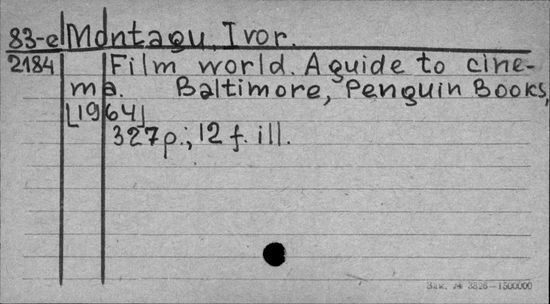 83-e Montagu, Ivor.
2184 Film world. A guide to cine-
ma. Baltimore, Penguin Books,
[1964]
327p.; 12 f. ill.
Зак. № 3826—1500000